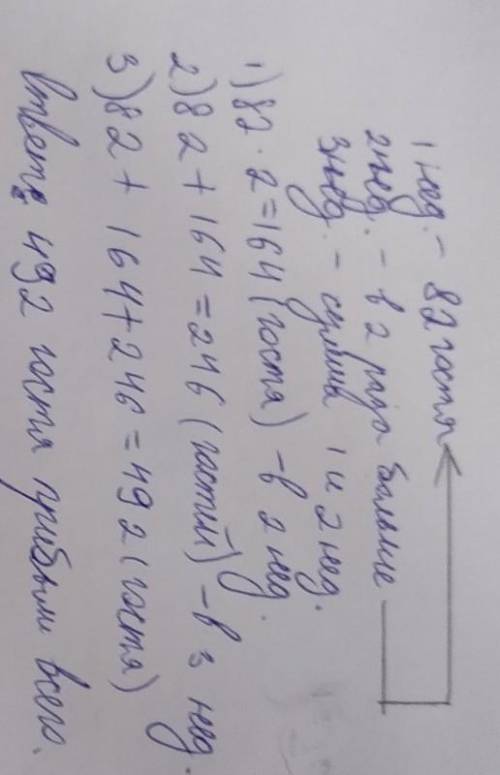 1 нед. - 82 гостя
2 нед. - в 2 раза больше
3 нед. - сумма 1 и 2 нед.
1) 82 · 2 = 164 (гостя) - в 2 нед.
2) 82 + 164 = 246 (гостей) - в 3 нед.
3) 82 + 164 + 246 = 492 (гостя)
Ответ: 492 гостя прибыли всего.